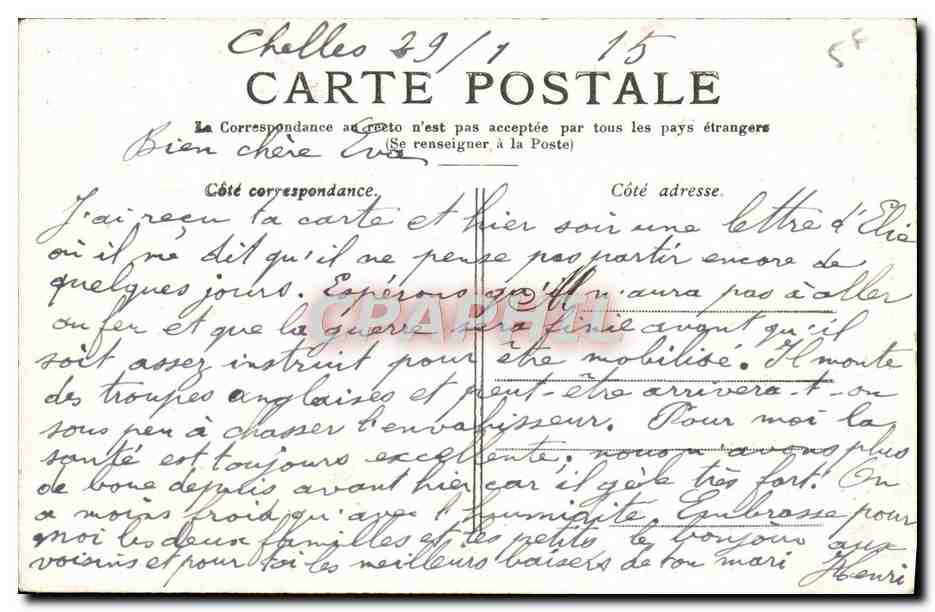 Chelles 29/1 15
5F
CARTE POSTALE
La Correspondance au recto n'est pas acceptée par tous les pays étrangers
(Se renseigner à la Poste)
Bien chère Eva
Côté correspondance.
Côté adresse.
J'ai reçu ta carte et hier soir une lettre d'Elie
où il me dit qu'il ne pense pas partir encore de
quelques jours. Espérons qu'il n'aura pas à aller
au feu et que la guerre sera finie avant qu'il
soit assez instruit pour être mobilisé. Il monte
des troupes anglaises et peut-être arrivera-t-on
sous peu à chasser l'envahisseur. Pour moi la
santé est toujours excellente, nous n'avons plus
de boue depuis avant hier car il gèle très fort. On
a moins froid qu'avec l'humidité. Embrasse pour
moi les deux familles et les petits le bonjour aux
voisins et pour toi les meilleurs baisers de ton mari
Henri
CPAPHIL